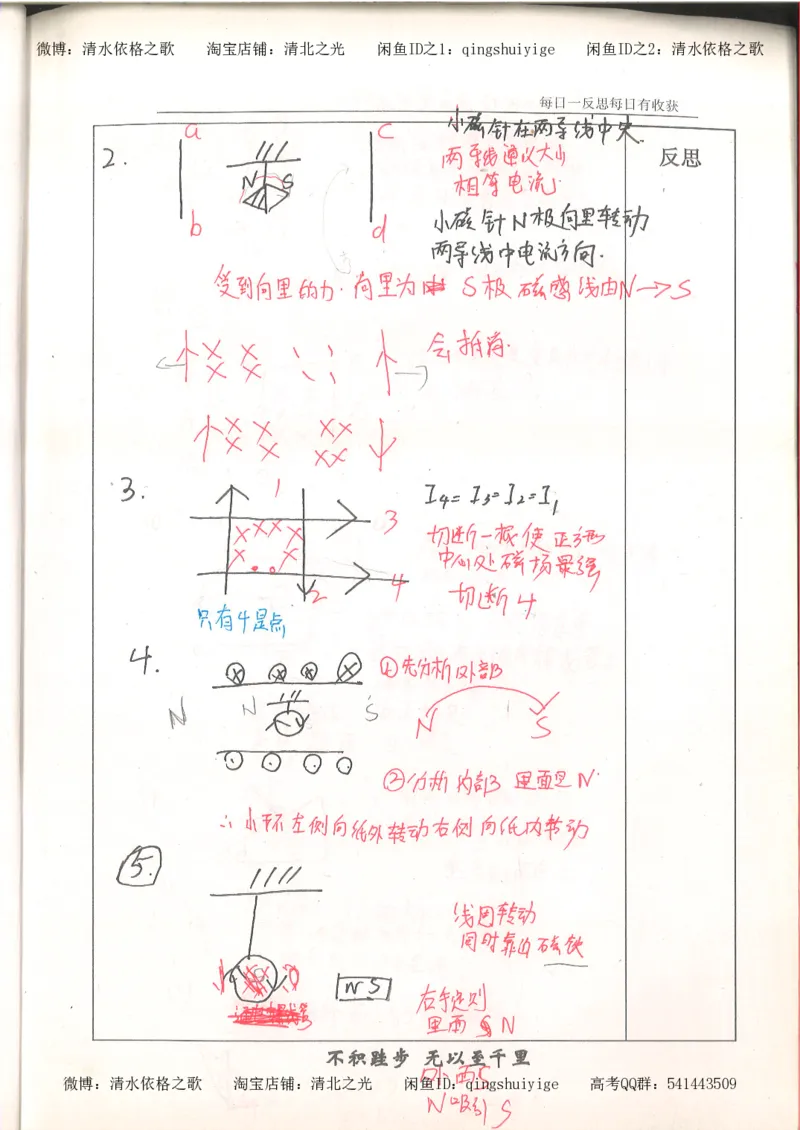 微博：清水依格之歌 淘宝店铺：清北之光 闲鱼ID之1：qingshuiyige 闲鱼ID之2：清水依格之歌
每日一反思每日有收获
反思
2.
a
b
N S
c
d
小磁针在两导线中央
两导线通以大小
相等电流
小磁针N极向里转动
两导线中电流方向.
受到向里的力.向里为 S极 磁感线由N→S
会抵消.
3.
1
3
4
2
I4=I3=I2=I1
切断一根使正方形
中心处磁场最强
切断4
只有4是点
4.
N N S
①先分析外部
N S
②分析内部 里面是N
∴小环左侧向纸外转动右侧向纸内转动
5.
N S
线圈转动
同时靠近磁铁
右手定则
里面 N
不积跬步 无以至千里
微博：清水依格之歌 淘宝店铺：清北之光 闲鱼ID：qingshuiyige 高考QQ群：541443509
N吸引S